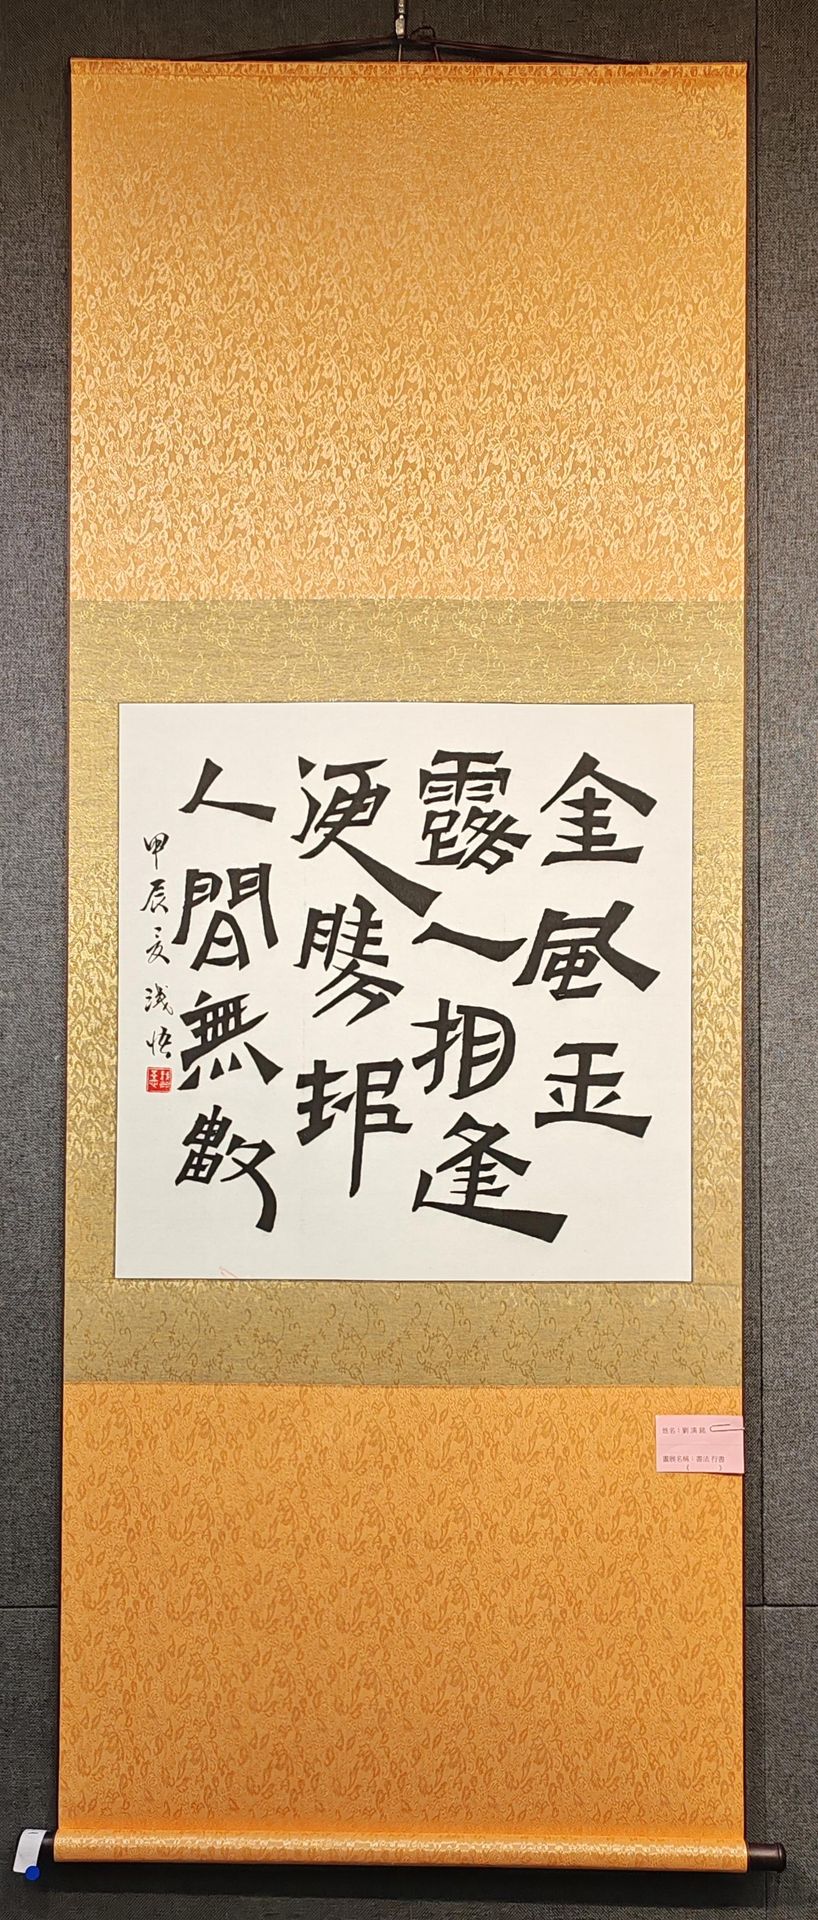 金風玉
露一相逢
便勝却
人間無數
甲辰夏 淺悟
姓名：劉漢銘
畫展名稱：書法 行書
(　　　)